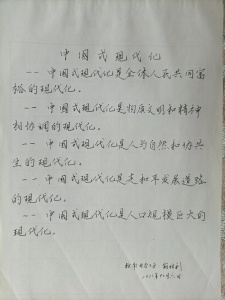 中国式现代化
-- 中国式现代化是全体人民共同富
裕的现代化。
-- 中国式现代化是物质文明和精神
相协调的现代化。
-- 中国式现代化是人与自然和谐共
生的现代化。
-- 中国式现代化是走和平发展道路
的现代化。
-- 中国式现代化是人口规模巨大的
现代化。